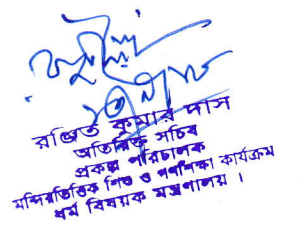 রঞ্জিত কুমার দাস
অতিরিক্ত সচিব
প্রকল্প পরিচালক
মন্দিরভিত্তিক শিশু ও গণশিক্ষা কার্যক্রম
ধর্ম বিষয়ক মন্ত্রণালয় ।